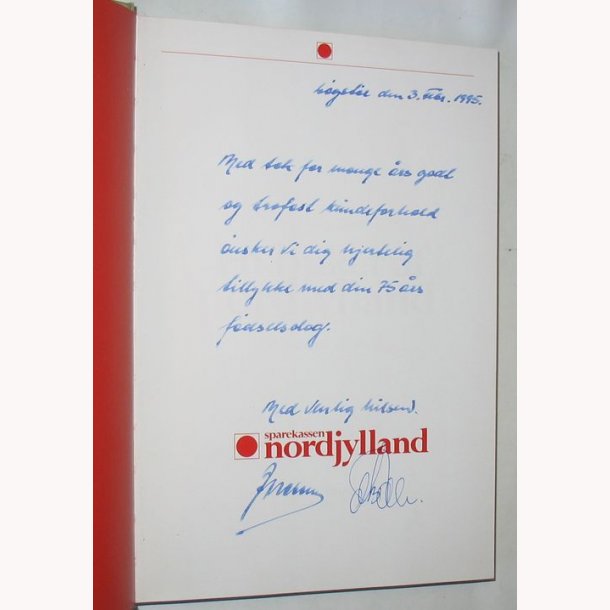 Løgstør den 3. Febr. 1995.
Med tak for mange års godt
og trofast kundeforhold
ønsker vi dig hjertelig
tillykke med din 75 års
fødselsdag.
Med venlig hilsen.
sparekassen
nordjylland